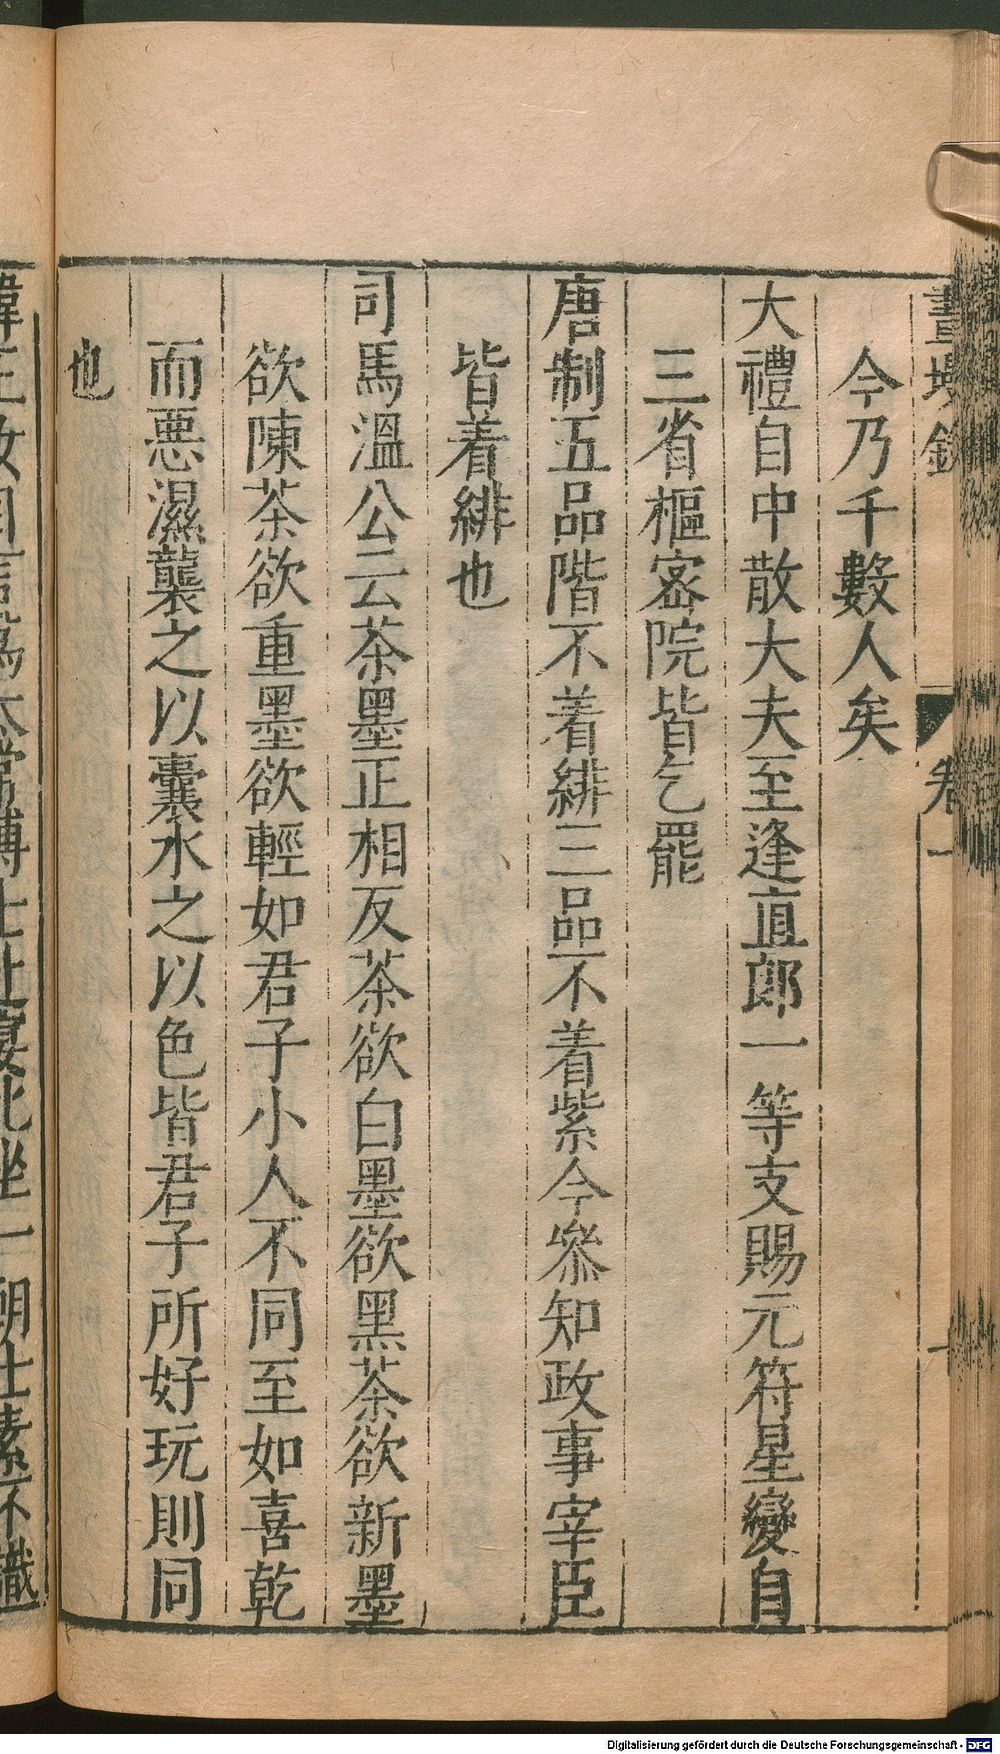 畫墁錄 卷一
今乃千數人矣
大禮自中散大夫至逢直郎一等支賜元符星變自
三省樞密院皆乞罷
唐制五品階不着緋三品不着紫今叅知政事宰臣
皆着緋也
司馬溫公云茶墨正相反茶欲白墨欲黑茶欲新墨
欲陳茶欲重墨欲輕如君子小人不同至如喜乾
而惡濕襲之以囊水之以色皆君子所好玩則同
也
女自言爲太常博士赴宴北坐一朝士素不識
Digitalisierung gefördert durch die Deutsche Forschungsgemeinschaft - DFG